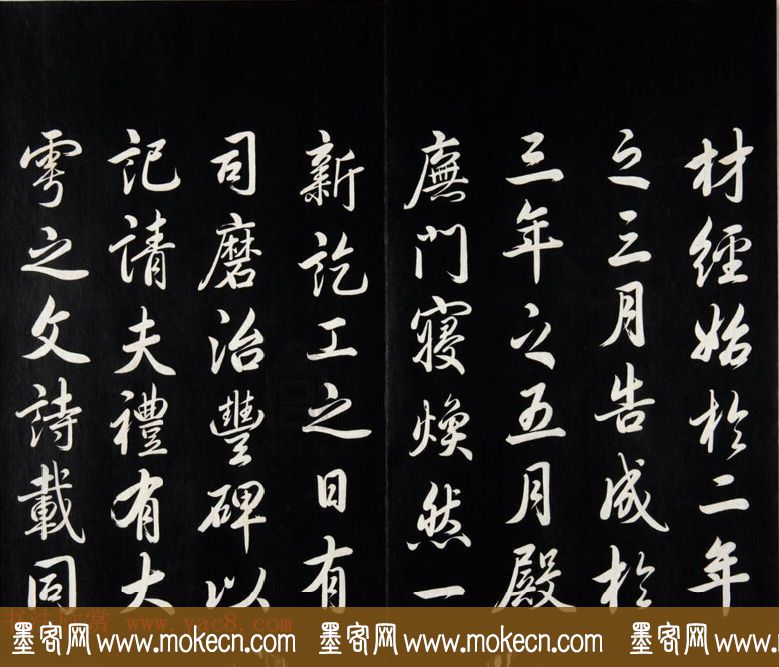 材經始於二年
之三月告成於
三年之五月殿
廡門寢煥然一
新訖工之日有
司磨治豐碑以
記請夫禮有大
雩之文詩載同
书法欣赏 www.yac8.com
墨客网 www.mokecn.com 墨客网 www.mokecn.com 墨客网 www.mokecn.